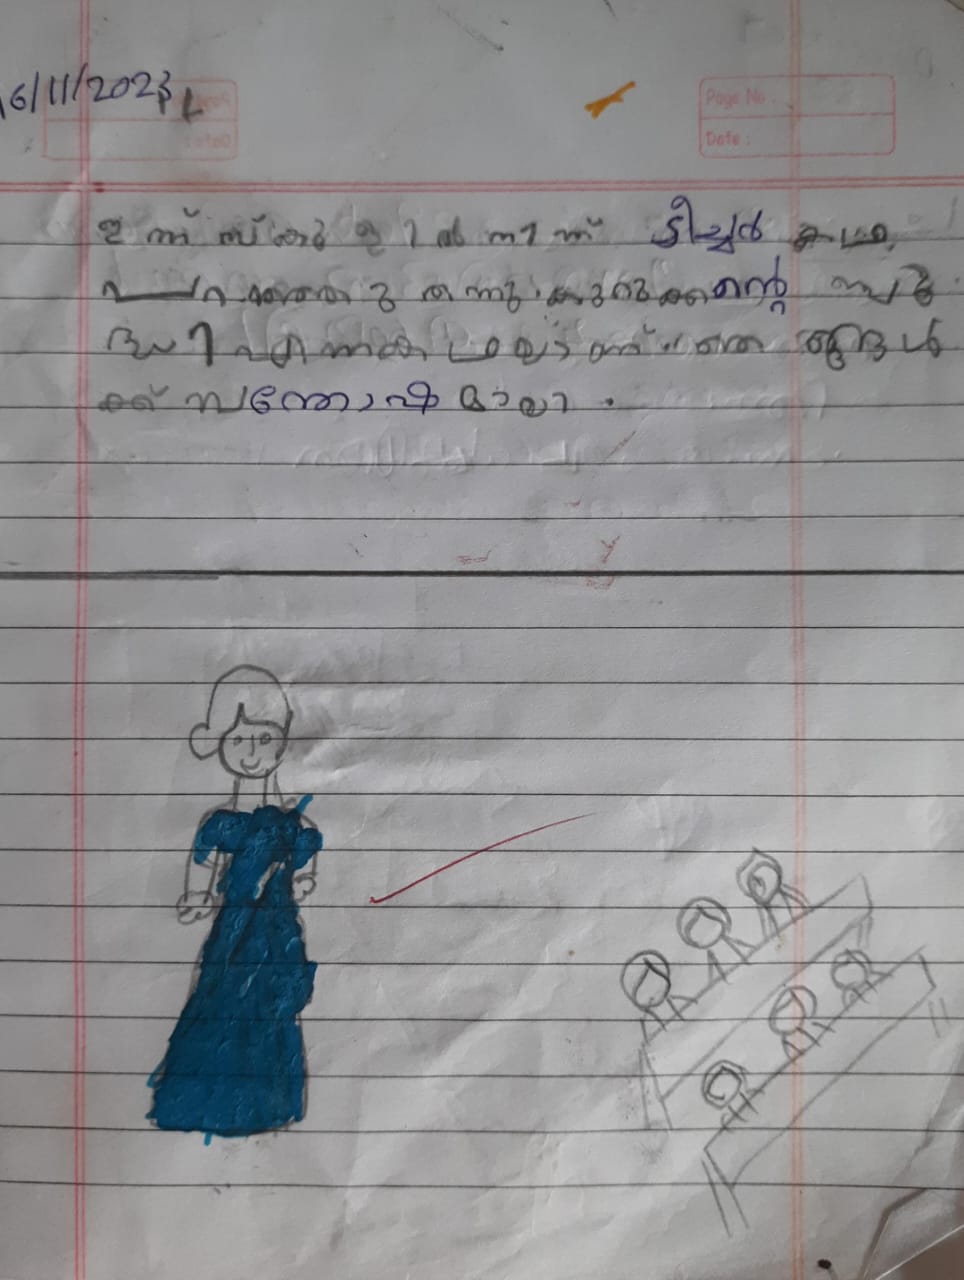 16/11/2023
Page No :
Date :
ഇന്ന് സ്കൂളിൽ നിന്ന് ടീച്ചർ കഥ
പറഞ്ഞു തന്നു. കുറുക്കന്റെ
എന്ന കഥയാണ്
ക്ക് സന്തോഷമായി .